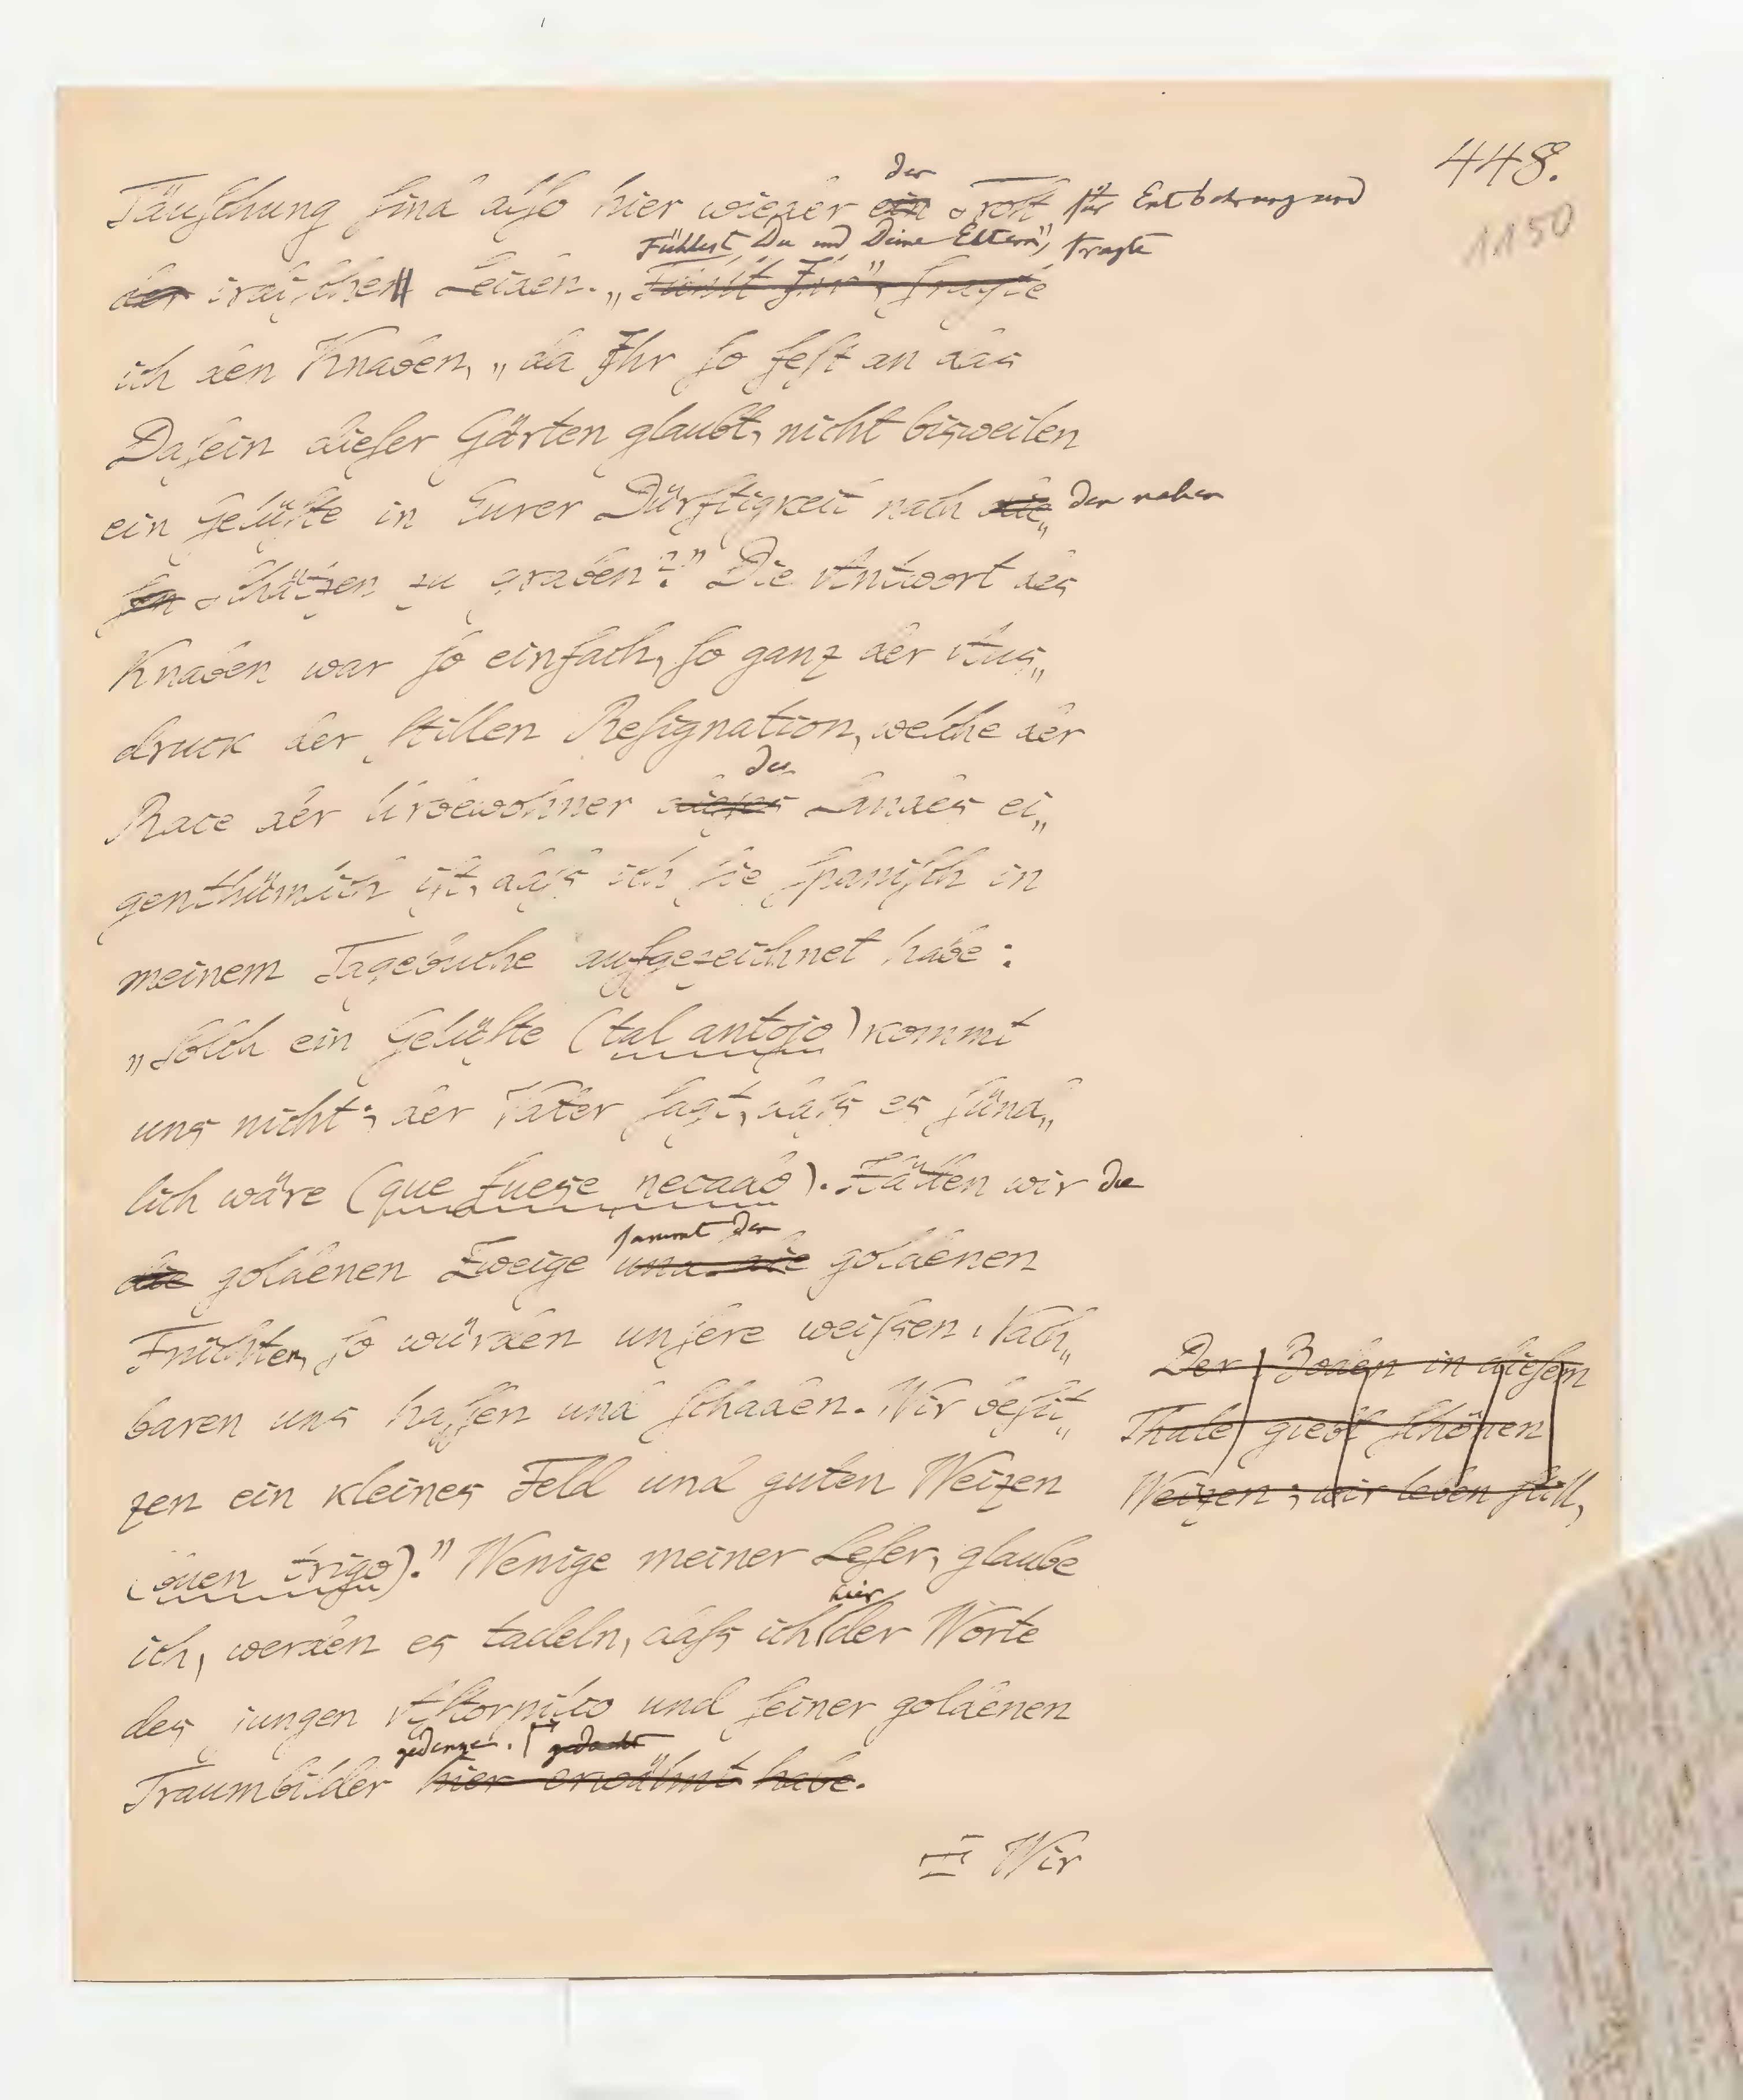 448.
1150
der
Täuschung sind also hier wieder ein Trost für Entbehrung und
Fühlest Du und Deine Eltern", fragte
der irdischen Leiden. „Fühlt Ihr", fragte
ich den Knaben, „da Ihr so fest an das
Dasein dieser Gärten glaubt, nicht bisweilen
ein Gelüste in Eurer Dürftigkeit nach die„ den nahen
sen Schätzen zu graben?" Die Antwort des
Knaben war so einfach, so ganz der Aus„
druck der stillen Resignation, welche der
des
Race der Urbewohner dieses Landes ei„
genthümlich ist, daſs ich sie spanisch in
meinem Tagebuche aufgezeichnet habe:
„Solch ein Gelüste (tal antojo) kommt
uns nicht; der Vater sagt, daſs es sünd„
lich wäre (que fuese pecado). Hätten wir die
sammt den
die goldenen Zweige und die goldenen
Früchten, so würden unsere weiſsen Nach„
baren uns hassen und schaden. Wir besit„
zen ein kleines Feld und guten Weizen
(buen trigo)." Wenige meiner Leser, glaube
hier
ich, werden es tadeln, daſs ich der Worte
des jungen Astorpilco und seiner goldenen
gedenke. gedacht
Traumbilder hier erwähnt habe.
Wir
Der Boden in diesem
Thale giebt schönen
Weizen; wir leben still,